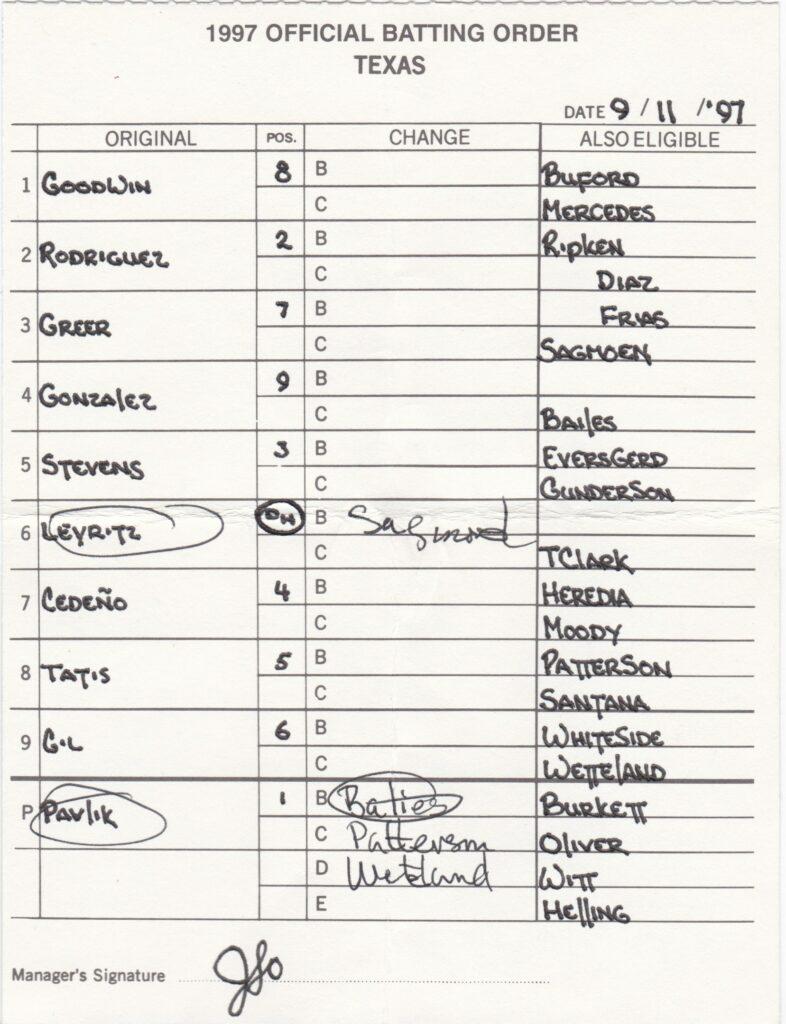 1997 OFFICIAL BATTING ORDER
TEXAS
DATE 9 / 11 / '97
ORIGINAL POS. CHANGE ALSO ELIGIBLE
1 GOODWIN 8 B BUFORD
C MERCEDES
2 RODRIGUEZ 2 B RIPKEN
C DIAZ
3 GREER 7 B FRIAS
C SAGMOEN
4 GONZALEZ 9 B
C BAILES
5 STEVENS 3 B EVERSGERD
C GUNDERSON
6 LEYRITZ DH B
C TCLARK
7 CEDEÑO 4 B HEREDIA
C MOODY
8 TATIS 5 B PATTERSON
C SANTANA
9 GIL 6 B WHITESIDE
C WETTELAND
P PAVLIK 1 B BURKETT
C Patterson OLIVER
D WITT
E HELLING
Manager's Signature